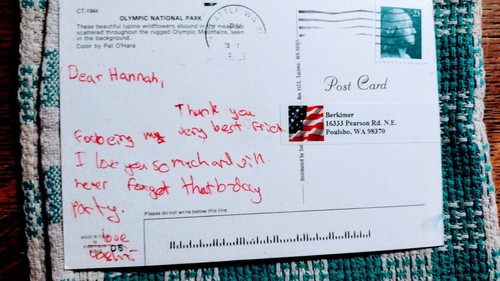 CT-1944
OLYMPIC NATIONAL PARK
These beautiful lupine wildflowers abound in the meadows
scattered throughout the rugged Olympic Mountains, seen
in the background.
Color by Pat O'Hara
Dear Hannah,
Thank you
for being my very best friend
I love you so much and will
never forget that b-day
party.
love
Please do not write below this line
Post Card
Berkimer
16333 Pearson Rd. N.E.
Poulsbo, WA 98370